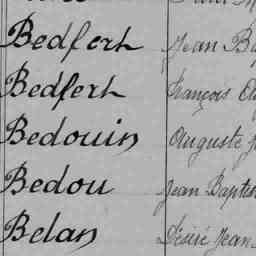 Bedfert Jean Bap
Bedfert François Au
Bedouin Auguste J
Bedou Jean Baptis
Belan Désiré Jean